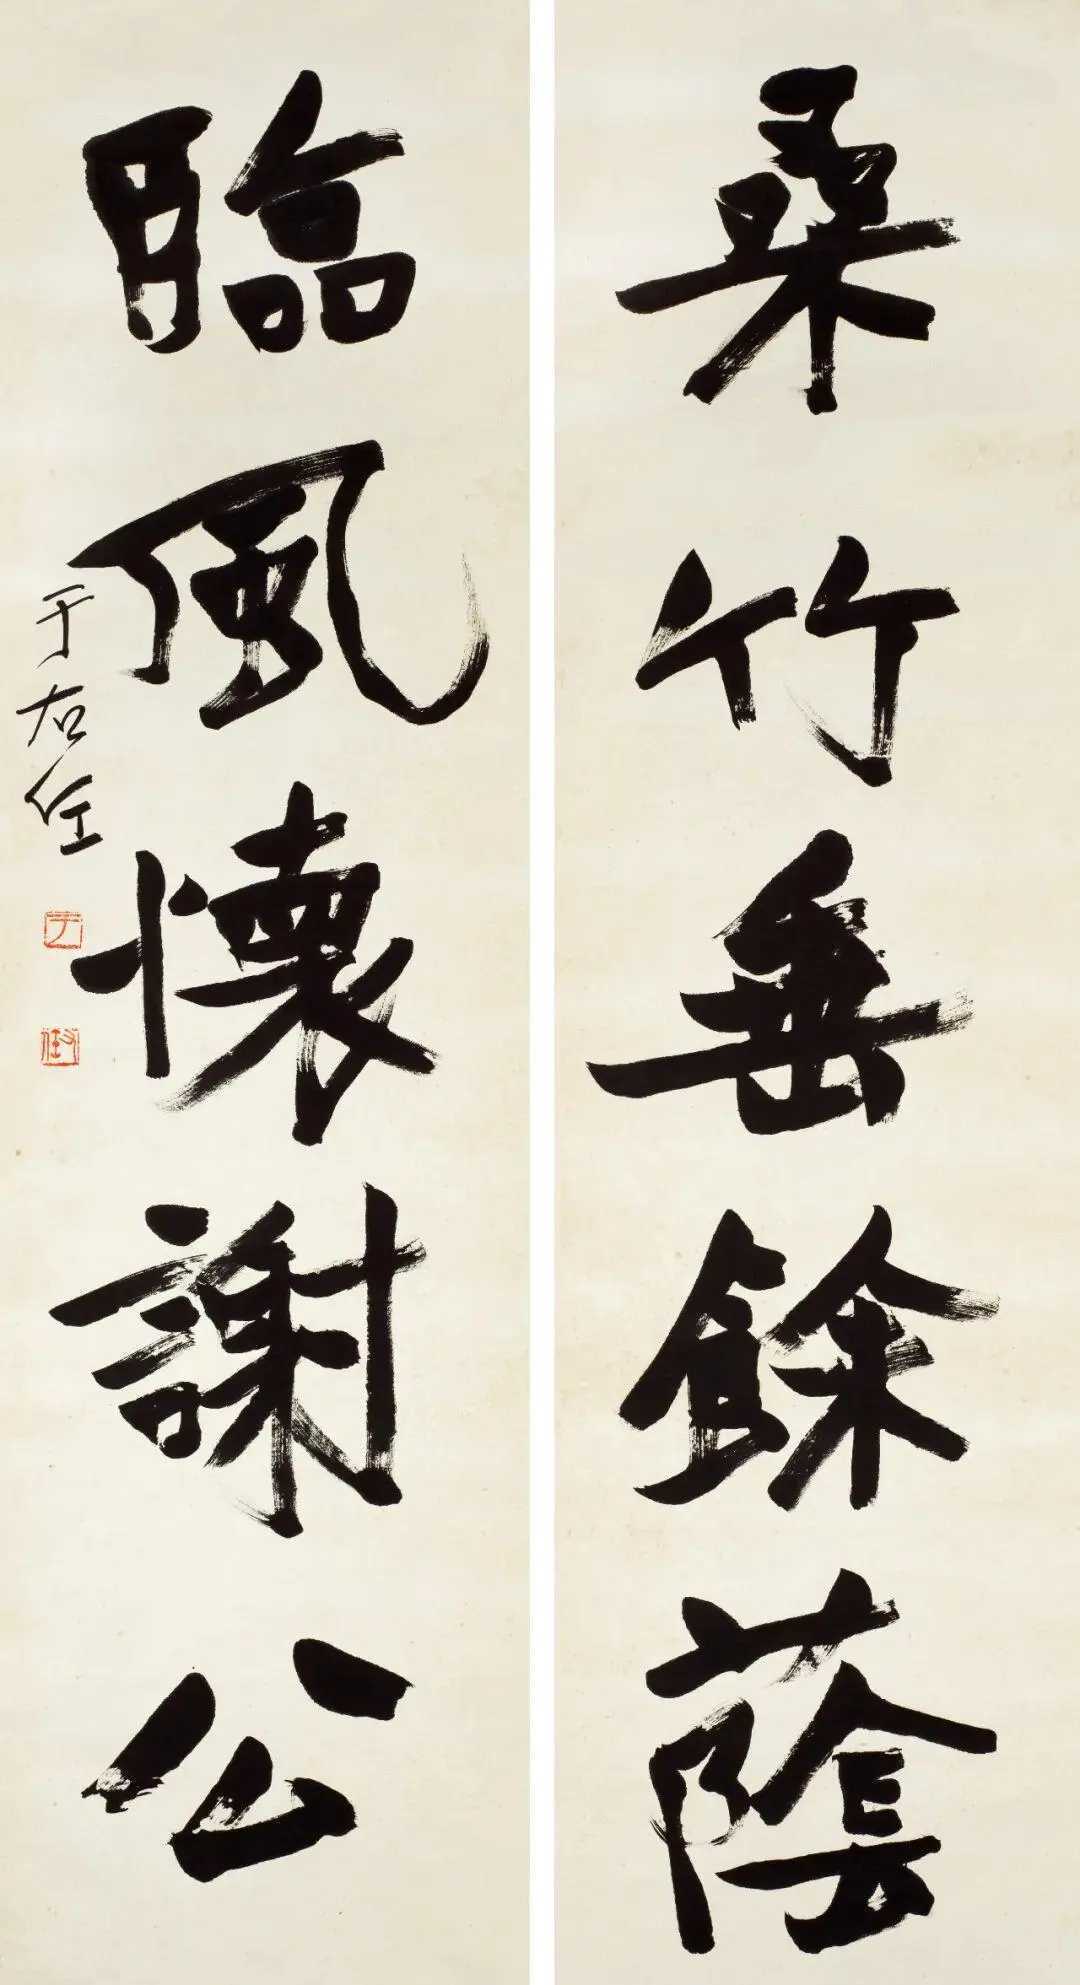 桑竹垂餘蔭
臨風懷謝公
于右任